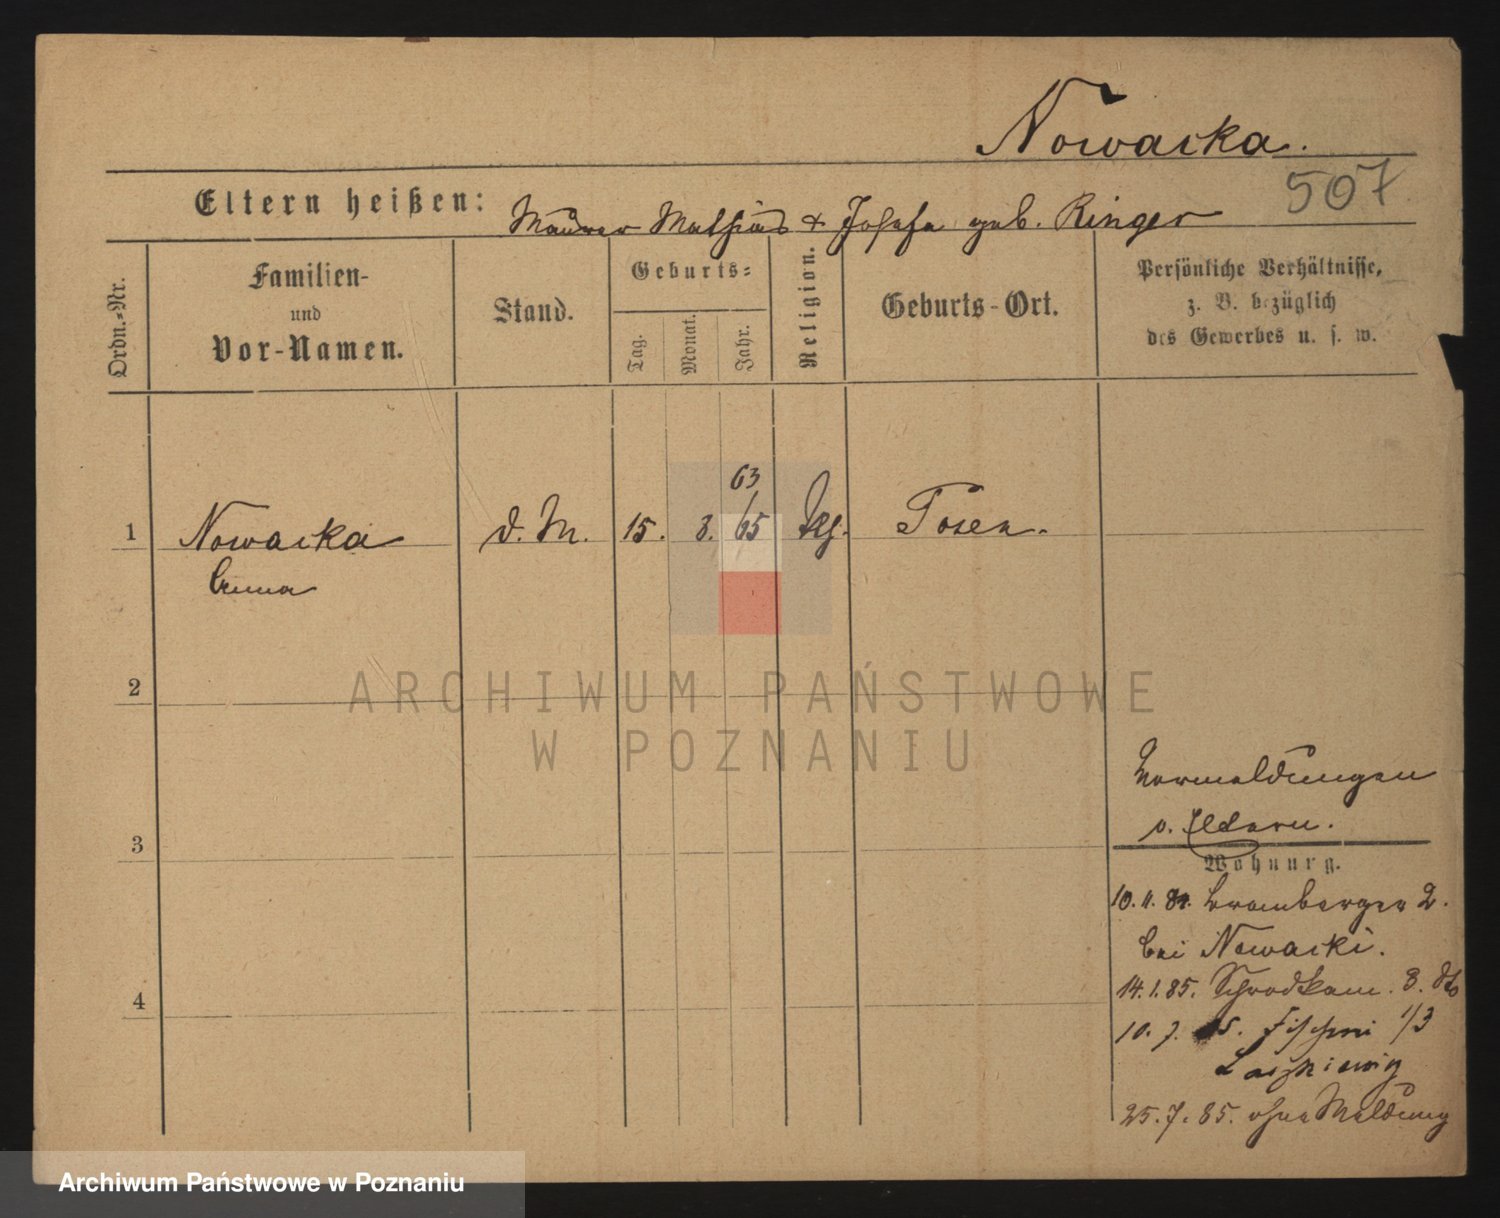 Nowacka.
507
Eltern heißen: Maurer Mathias & Josefa geb. Ringer
Ordn.-Nr.
Familien-
und
Vor-Namen.
Stand.
Geburts-
Tag.
Monat.
Jahr.
Religion.
Geburts-Ort.
Persönliche Verhältnisse,
z. B. bezüglich
des Gewerbes u. s. w.
63
1 Nowacka d. M. 15. 8. 65 kg. Posen.
Anna
2
3
4
Vormeldungen
v. Eltern.
Wohnung.
10. 11. 84. Bromberger 2.
bei Nowacki.
14. 1. 85. Schrodkam. 3. dto
10. 7. 85. Fischerei 1/3
25. 7. 85. ohne Meldung
ARCHIWUM PAŃSTWOWE
W POZNANIU
Archiwum Państwowe w Poznaniu